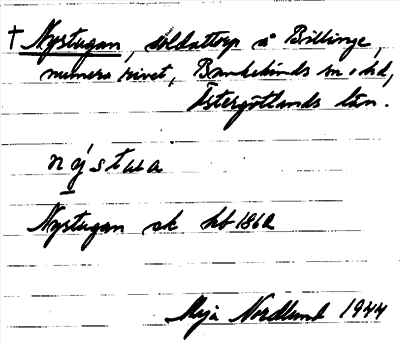 † Nystugan, soldattorp å Billinge,
numera rivet, Bankekinds sn o hd,
Östergötlands län.
nýstua
Nystugan sk hb 1862
Maja Nordlund 1944